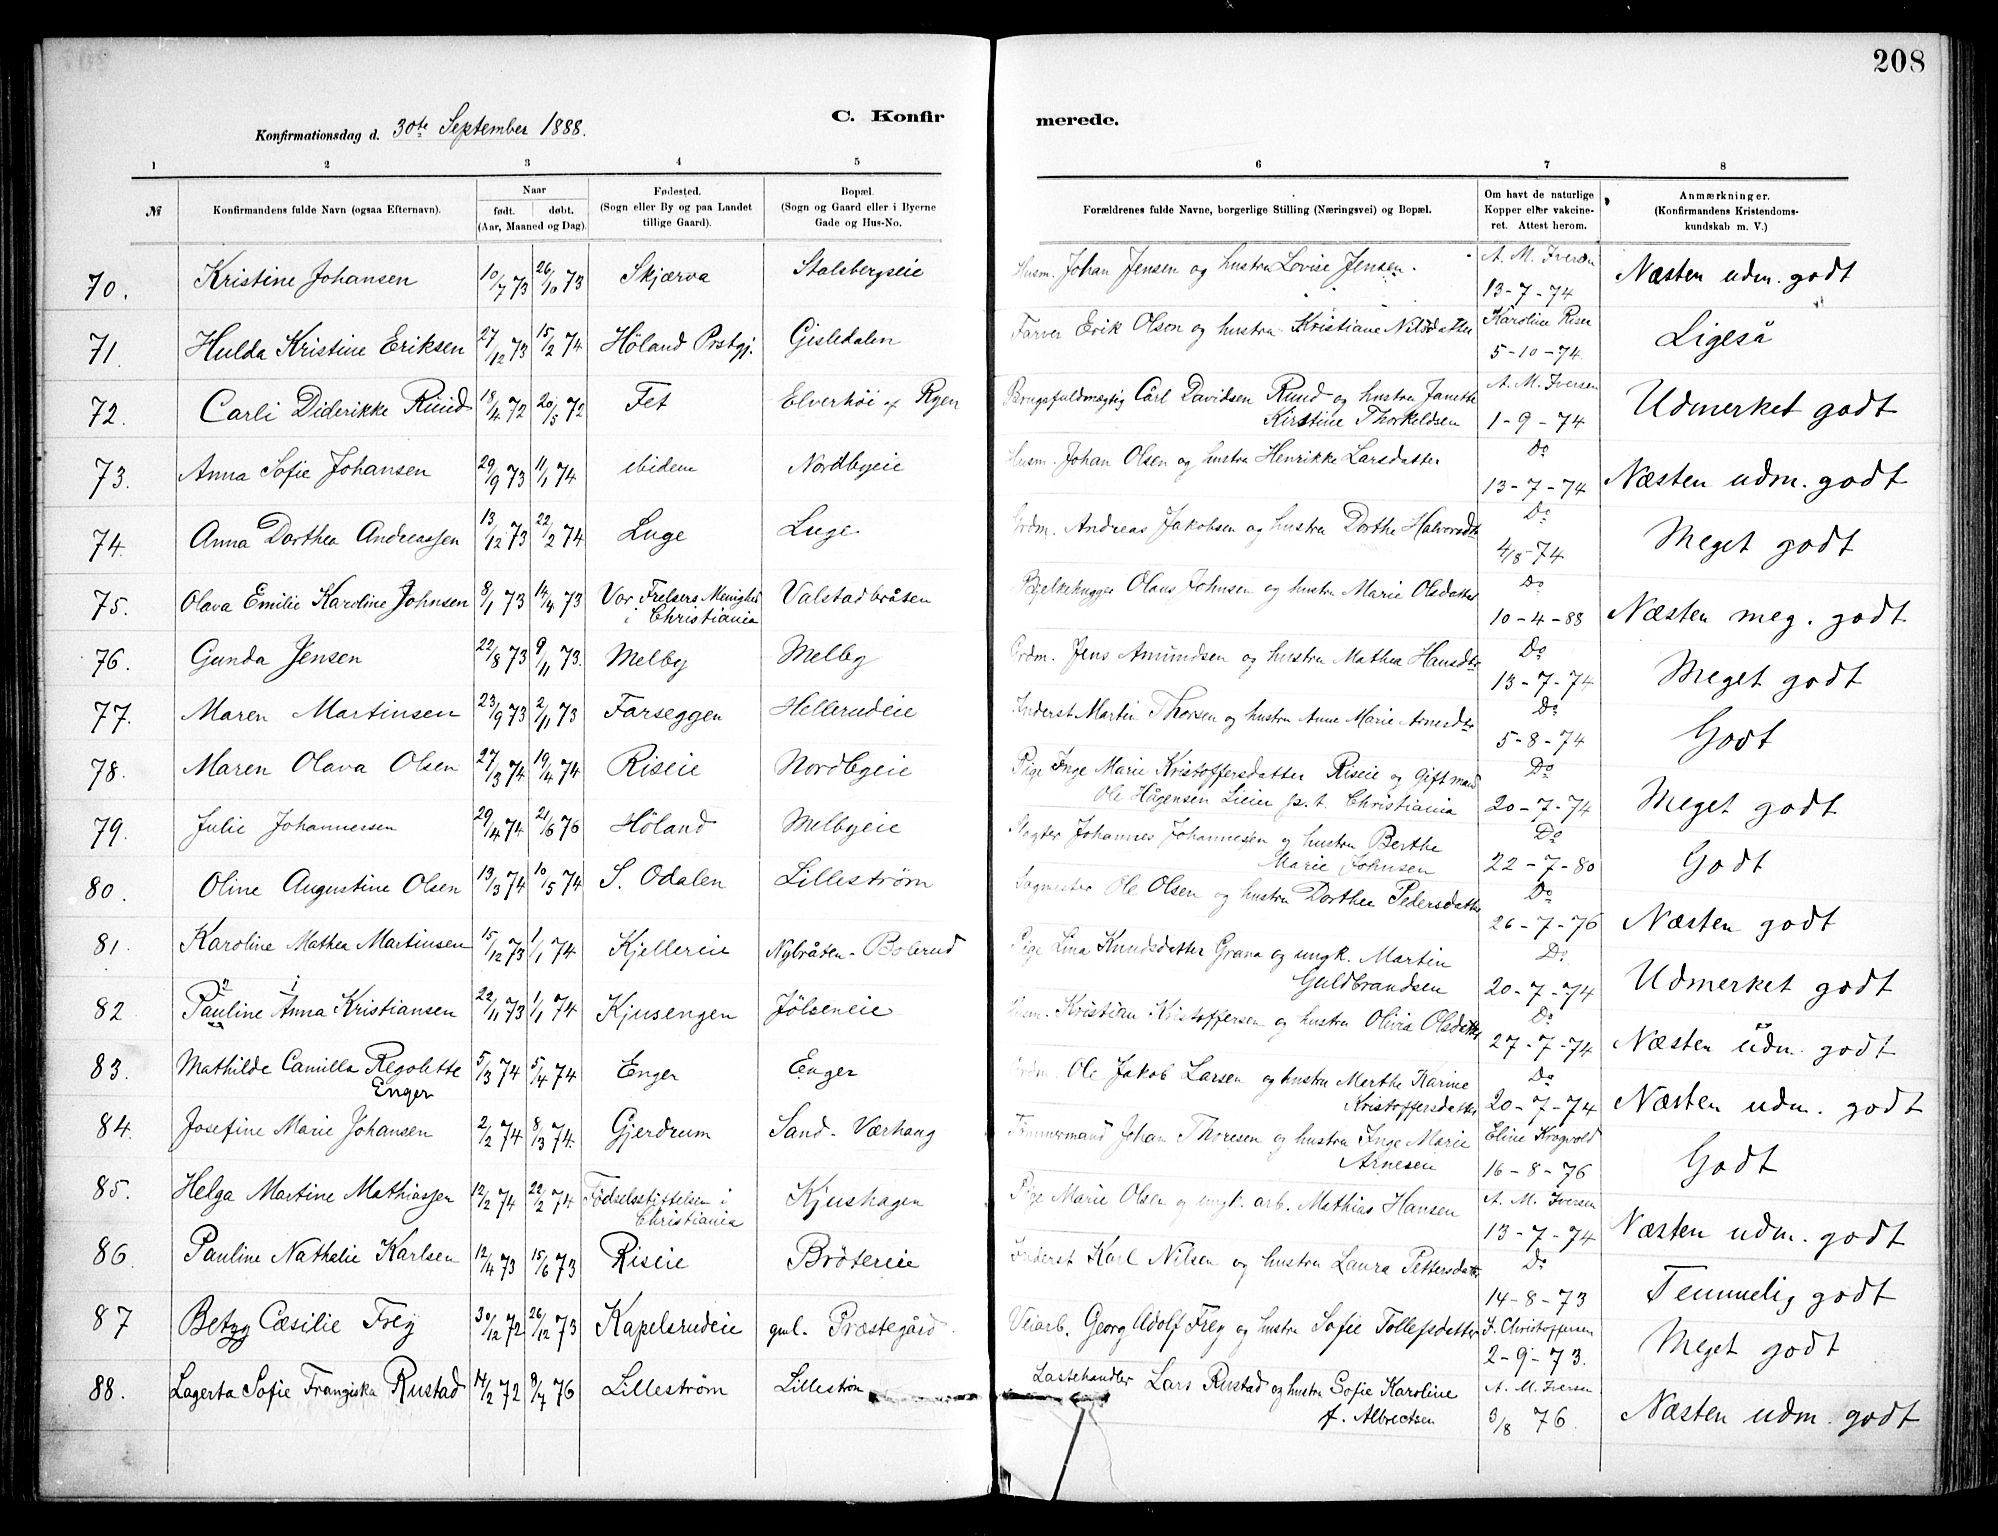 208
Konfirmationsdag d. 30te September 1888.
C. Konfirmerede.
1 2 3 4 5 6 7 8
№ Konfirmandens fulde Navn (ogsaa Efternavn). Naar født. døbt. (Aar, Maaned og Dag). Fødested. (Sogn eller By og paa Landet tillige Gaard). Bopæl. (Sogn og Gaard eller i Byerne Gade og Hus-No. Forældrenes fulde Navne, borgerlige Stilling (Næringsvei) og Bopæl. Om havt de naturlige Kopper eller vakcineret. Attest herom. Anmærkninger. (Konfirmandens Kristendomskundskab m. V.)
70. Kristine Johansen 10/7 73 26/10 73 Skjærva Stalsbergseie Husm. Johan Jensen og hustru Lovise Jensen. A. M. Iversen 13-7-74 Næsten udm. godt
71. Hulda Kristine Eriksen 27/12 73 15/2 74 Höland Prstgj. Gisledalen Farver Erik Olsen og hustru Kristiane Nilsdatter Karoline Riser 5-10-74 Ligeså
72. Carli Diderikke Ruud 18/4 72 20/5 72 Fet Elverhöi af Ryen Brugsfuldmægtig Carl Davidsen Ruud og hustru Janeth Kirstine Thorkeldsen A. M. Iversen 1-9-74 Udmerket godt
73. Anna Sofie Johansen 29/9 73 11/1 74 ibidem Nordbyeie Husm. Johan Olsen og hustru Henrikke Larsdatter Do 13-7-74 Næsten udm. godt
74. Anna Dorthea Andreassen 13/12 73 22/2 74 Luge Luge Grdm. Andreas Jakobsen og hustru Dorthe Halvorsdtr Do 4/8-74 Meget godt
75. Olava Emilie Karoline Johnsen 8/1 73 14/4 73 Vor Frelsers Menighed i Christiania Valstadbråten Bjelkehugger Olaus Johnsen og hustru Marie Olsdatter Do 10-4-88 Næsten meg. godt
76. Gunda Jensen 22/8 73 9/11 73. Melby Melby Grdm. Jens Amundsen og hustru Mathea Hansdtr Do 13-7-74 Meget godt
77. Maren Martinsen 23/9 73 2/11 73 Farseggen Hellerudeie Inderst Martin Thorsen og hustru Anne Marie Arnesdtr Do 5-8-74 Godt
78. Maren Olava Olsen 27/3 74 19/4 74 Riseie Nordbyeie Pige Inge Marie Kristoffersdatter Riseie og Gift mand Ole Hågensen Lieier p.t. Christiania Do 20-7-74 Meget godt
79. Julie Johannessen 29/4 74 21/6 76 Höland Melbyeie Røgter Johannes Johannesen og hustru Berthe Marie Johnsen Do 22-7-80 Godt
80. Oline Augustine Olsen 13/3 74 10/5 74 S. Odalen Lilleström Sagmester Ole Olsen og hustru Dorthea Pedersdatter Do 26-7-76 Næsten godt
81. Karoline Mathea Martinsen 15/12 73 1/1 74 Kjellereie Nybråten-Bolerud Pige Lina Knudsdatter Grana og ungk. Martin Guldbrandsen Do 20-7-74 Udmerket godt
82 Pauline Anna Kristiansen 22/11 73 1/1 74 Kjusengen Jölseneie Husm. Kristian Kristoffersen og hustru Olivia Olsdatter Do 27-7-74 Næsten udm. godt
83. Mathilde Camilla Regolette Enger 5/3 74 5/4 74 Enger Enger Grdm. Ole Jakob Larsen og hustru Merthe Karine Kristoffersdatter Do 20-7-74 Næsten udm. godt
84. Josefine Marie Johansen 2/2 74 8/13 74. Gjerdrum Sand-Værhaug Tömmermand Johan Thoresen og hustru Inge Marie Arnesen Eline Krogvold 16-8-76 Godt
85. Helga Martine Mathiassen 12/2 74 22/2 74 Födselsstiftelsen i Christiania Kjushagen Pige Marie Olsen og ungk. arb. Mathias Hansen A. M. Iversen 13-7-74 Næsten udm. godt
86. Pauline Nathalie Karlsen 12/4 73 15/6 73 Riseie Brötereie Inderst Karl Nilsen og hustru Laura Pettersdatter Do 14-8-73 Temmelig godt
87 Betzy Cæsilie Frey 30/12 72 26/12 73 Kapelsrudeie gml. Præstegård Veiarb. Georg Adolf Frey og hustru Sofie Tollefsdatter F. Christoffersen 2-9-73. Meget godt
88. Lagerta Sofie Franziska Rustad 14/2 72 9/7 76 Lilleström Lilleström Lastehandler Lars Rustad og hustru Sofie Karoline f. Albrectsen A. M. Iversen 3/8 76. Næsten udm. godt